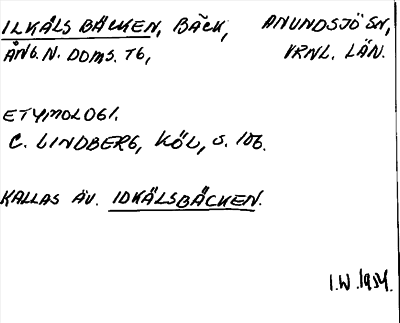 ILKÅLSBÄCKEN, BÄCK, ANUNDSJÖ SN,
ÅNG. N. DOMS. TG, VRNL. LÄN.
ETYMOLOGI.
C. LINDBERG, KÖL, S. 106.
KALLAS ÄV. IDKÅLSBÄCKEN.
I.W. 1954.